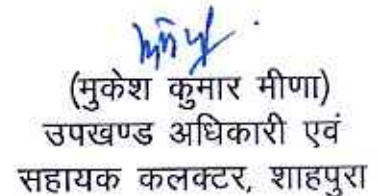 (मुकेश कुमार मीणा)
उपखण्ड अधिकारी एवं
सहायक कलक्टर, शाहपुरा